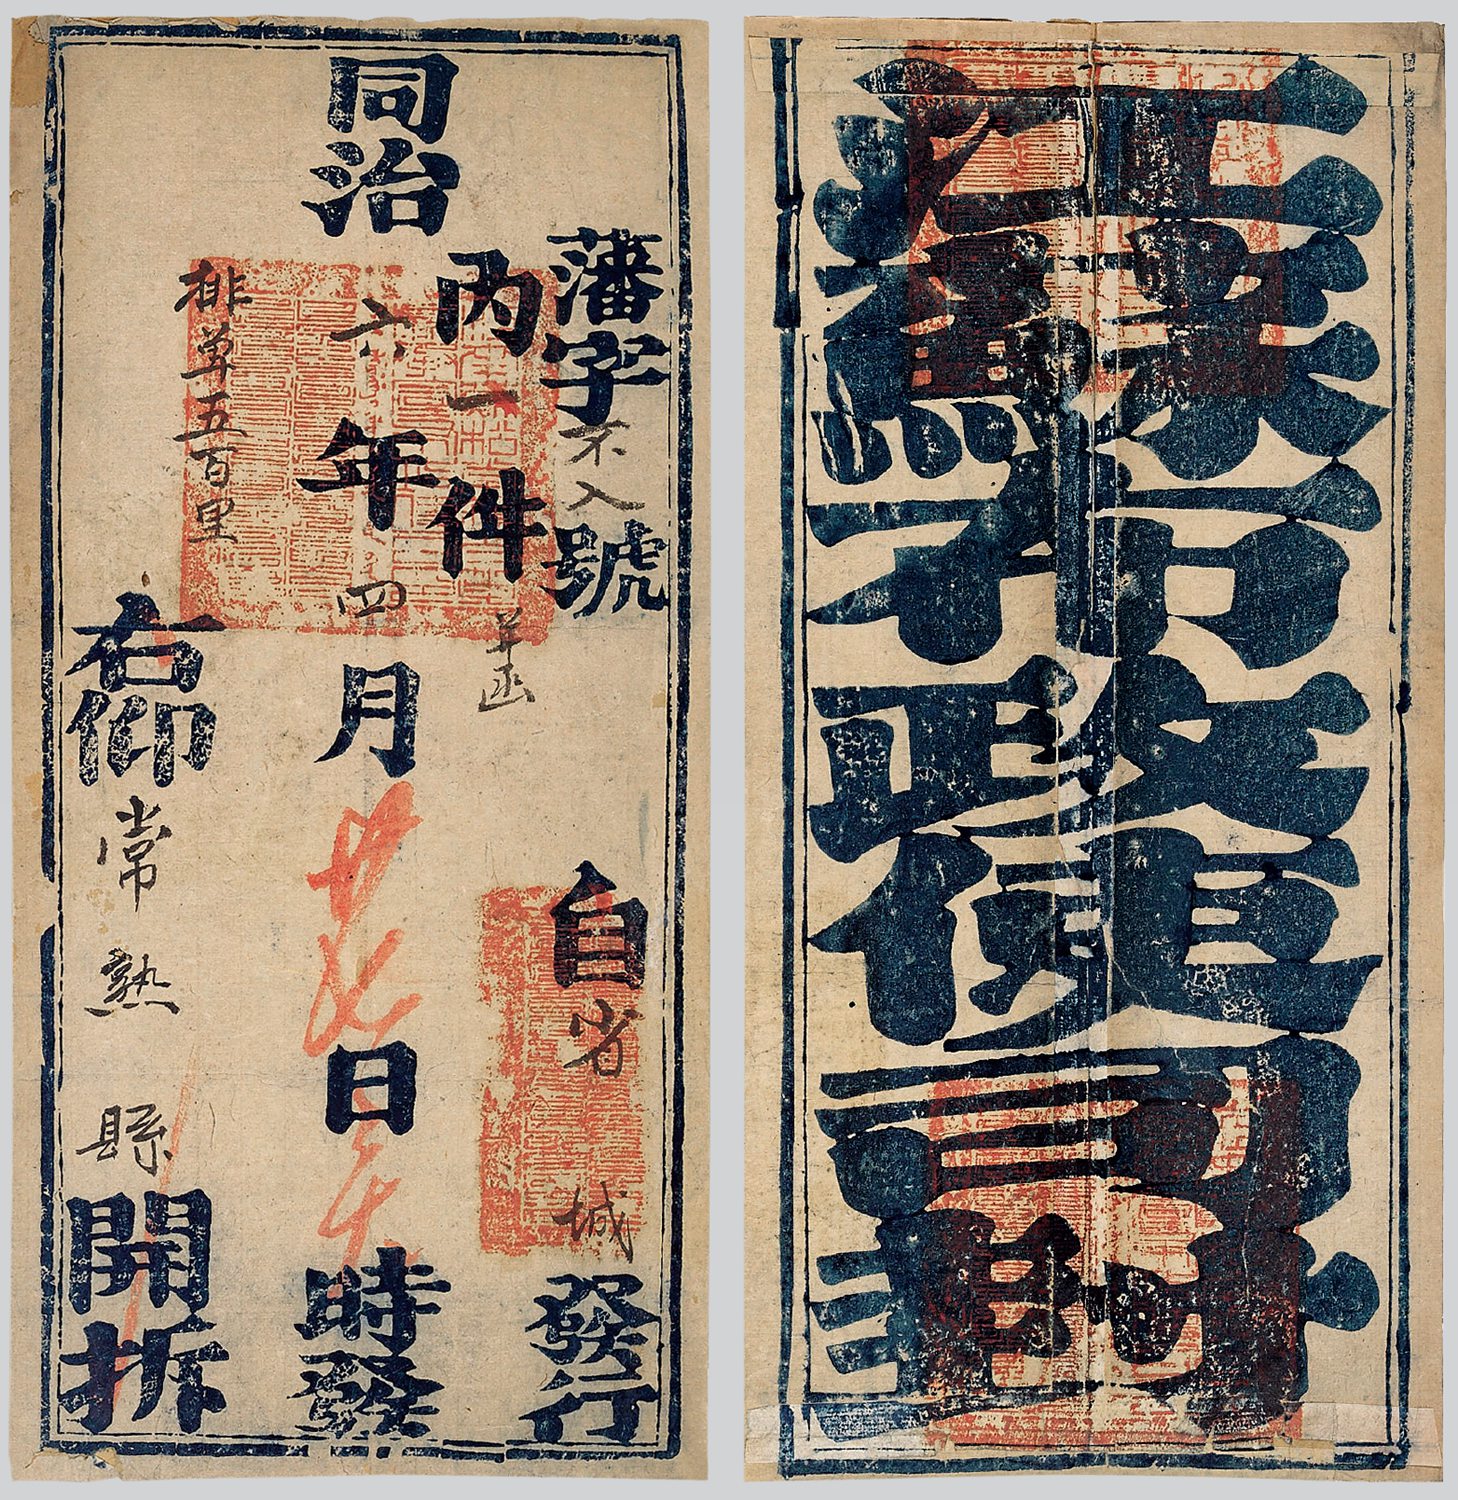 藩字不入號
內一件
自省城發行
同治六年四月廿日午時發
排单五百里
右仰常熟縣開拆
江蘇布政使司